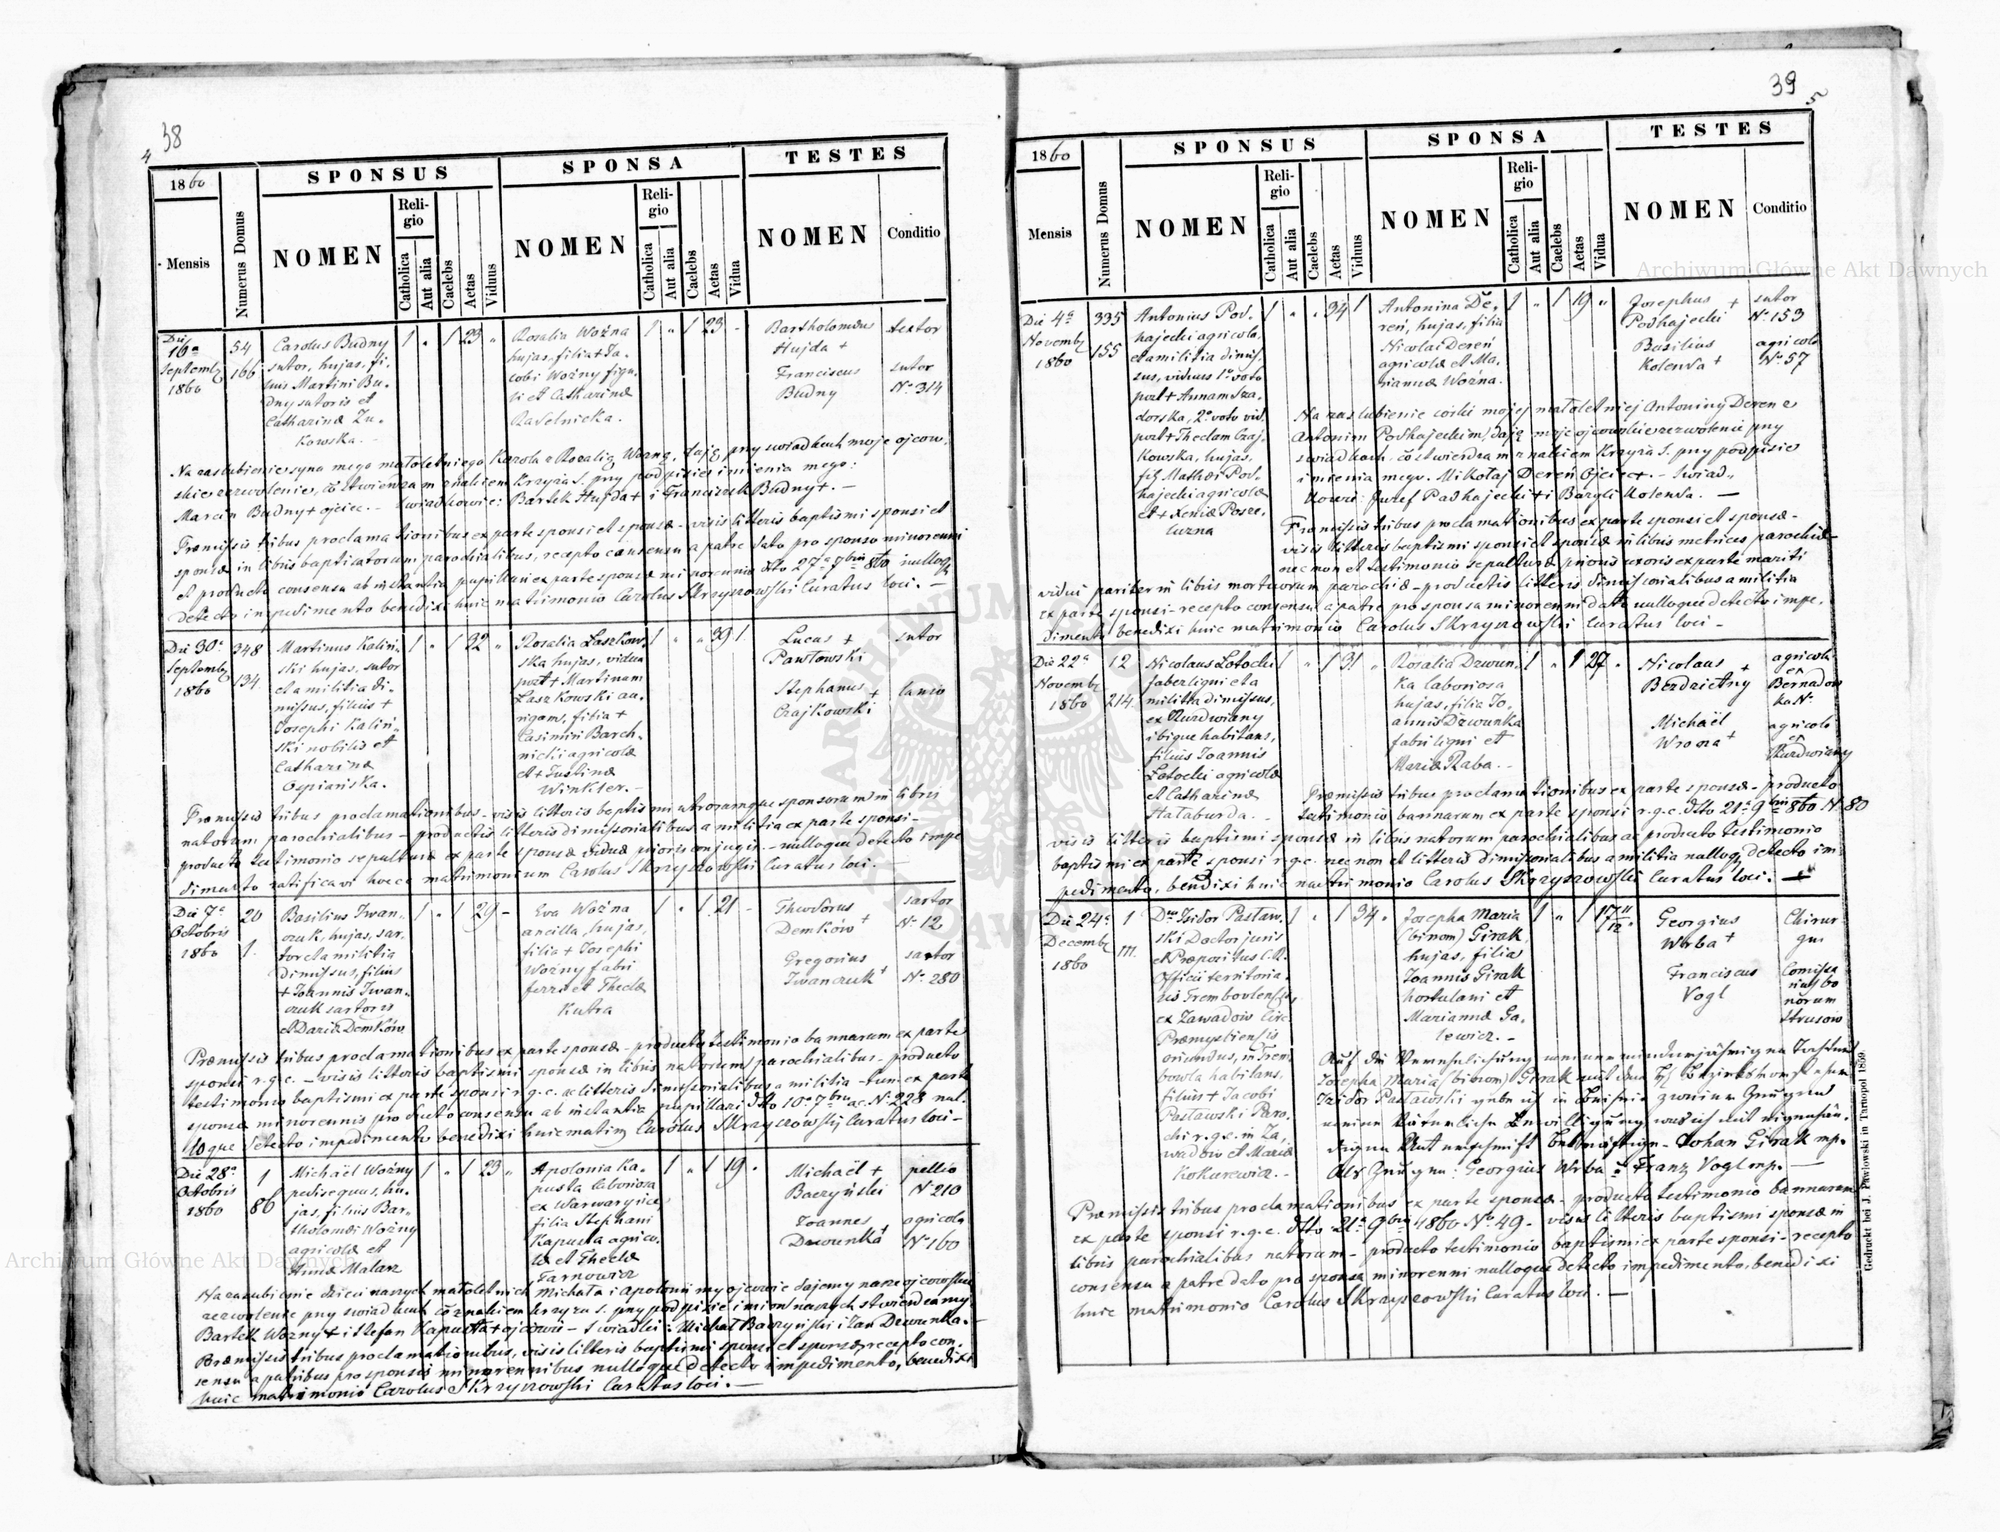 38
4
1860
SPONSUS
SPONSA
TESTES
Mensis
Numerus Domus
NOMEN
Reli-
gio
Catholica
Aut alia
Caelebs
Aetas
Viduus
NOMEN
Reli-
gio
Catholica
Aut alia
Caelebs
Aetas
Vidua
NOMEN
Conditio
Die
16a
Septemb
1860
54
166
Carolus Budny
sutor, hujas, fi-
lius Martini Bu-
dny sutoris et
Catharinæ Żu-
kowska. -
1 " 1 23 "
Rosalia Woźna
hujas, filia + Ja-
cobi Woźny figu-
li et Catharinæ
1 " 1 23 -
Bartholomæus
Hujda +
Franciscus
Budny
textor
sutor
No 314
Na zaslubienie syna mego małoletniego Karola z Rozalią Woźną, daję przy swiadkach moje ojcow-
skie zezwolenie, co stwierdzam znakiem krzyża S. przy podpisie imienia mego:
Marcin Budny + ojciec. - Swiadkowie: Bartek Hujda + i Franciszek Budny +. -
Præmissis tribus proclamationibus ex parte sponsi et sponsæ - visis litteris baptismi sponsi et
sponsæ in libris baptisatorum parochialibus, recepto consensu a patre dato pro sponso minorenni
et producto consensu ab instantia pupillari ex parte sponsæ minorennis dtto 27a 7bris 860 nulloq
detecto impedimento benedixi huic matrimonio Carolus Skrzyszowski Curatus loci. -
Die 30a
Septemb
1860
348
134
Martinus Kaliń-
ski hujas, sutor
et a militia di-
missus, filius +
Josephi Kaliń-
ski nobilis et
Catharinæ
Ospiańska.
1 " 1 32 "
Rosalia Laszkow-
ska hujas, vidua
post + Martinum
Laszkowski au-
rigam, filia +
Casimiri Barch-
nicki agricolæ
et + Justinæ
Winkler. -
1 " " 39 1
Lucas +
Pawłowski
Stephanus +
Czajkowski
sutor
lanio
Præmissis tribus proclamationibus - visis litteris baptismi utrorumque sponsorum in libris
natorum parochialibus - productis litteris dimissionalibus a militia ex parte sponsi -
producto testimonio sepulturæ ex parte sponsæ viduæ prioris conjugis. - nulloque detecto impe
dimento ratificavi hocce matrimonium Carolus Skrzyszowski Curatus loci. -
Die 7a
Octobris
1860
20
1
Basilius Iwan-
czuk, hujas, sar-
tor et a militia
dimissus, filius
+ Joannis Iwan-
czuk sartoris
et Dariæ Demków
1 " 1 29 -
Eva Woźna
ancilla, hujas,
filia + Josephi
Woźny fabri
ferri et Theclæ
Kutra
1 " 1 21 -
Theodorus
Demków +
Gregorius
Iwanczuk +
sartor
No 12
sartor
No 280
Præmissis tribus proclamationibus ex parte sponsæ - producto testimonio bannorum ex parte
sponsi r.g.c. - visis litteris baptismi sponsæ in libris natorum parochialibus - producto
testimonio baptismi ex parte sponsi r.g.c. ac litteris dimissionalibus a militia - tum ex parte
sponsæ minorennis producto consensu ab instantia pupillari dtto 10a 7bris a.c. No 228 nul-
loque detecto impedimento benedixi huic matrim Carolus Skrzyszowski Curatus loci -
Die 28a
Octobris
1860
1
86
Michaël Woźny
pedisequus, hu-
jas, filius Bar-
tholomæi Woźny
agricolæ et
Annæ Malarz
1 " 1 23 "
Apolonia Ka-
pusta laboriosa
ex Warwaryńce,
filia Stephani
Kapusta agrico-
læ et Theclæ
Tarnowicz
1 " 1 19 "
Michaël +
Baczyński
Joannes
Dzwunka +
pellio
No 210
agricola
No 160
Na zaslubienie dzieci naszych małoletnich Michała i Apolonii my ojcowie dajemy nasze ojcowskie
zezwolenie przy swiadkach co znakiem krzyża S. przy podpisie imion naszych stwierdzamy.
Bartek Woźny + i Stefan Kapusta + ojcowie - Swiadki: Michał Baczyński i Jan Dzwunka. -
Præmissis tribus proclamationibus, visis litteris baptismi sponsi et sponsæ, recepto con-
sensu a patribus pro sponsis minorennibus nulloque detecto impedimento, benedixi
huic matrimonio Carolus Skrzyszowski Curatus loci. -
39
5
1860
SPONSUS
SPONSA
TESTES
Mensis
Numerus Domus
NOMEN
Reli-
gio
Catholica
Aut alia
Caelebs
Aetas
Viduus
NOMEN
Reli-
gio
Catholica
Aut alia
Caelebs
Aetas
Vidua
NOMEN
Conditio
Die 4a
Novemb
1860
335
155
Antonius Pod-
hajecki agricola,
et a militia dimis-
sus, viduus 1o voto
post + Annam Sza-
dorska, 2o voto vid.
post + Theclam Czaj-
kowska, hujas,
fil. Mathæi Pod-
hajecki agricolæ
et + Xeniæ
1 " " 34 1
Antonina De-
reń, hujas, filia
Nicolai Dereń
agricolæ et Ma-
riannæ Woźna.
1 " 1 19 "
Josephus +
Podhajecki
Basilius
Kolenda +
sutor
No 153
agricola
No 57
Na zaslubienie córki mojej małoletniej Antoniny Deren z
Antonim Podhajeckim, daję moje ojcowskie zezwolenie przy
swiadkach, co stwierdzam znakiem krzyża S. przy podpisie
imienia mego. Mikołaj Dereń Ojciec +. - Swiad-
kowie: Juzef Podhajecki + i Bazyli Kolenda. -
Præmissis tribus proclamationibus ex parte sponsi et sponsæ -
visis litteris baptismi sponsi et sponsæ in libris metrices parochiæ -
nec non et testimonio sepulturæ prioris uxoris ex parte mariti
vidui pariter in libris mortuorum parochiæ - productis litteris dimissionalibus a militia
ex parte sponsi - recepto consensu a patre pro sponsa minorenni dato nulloque detecto impe-
dimento benedixi huic matrimonio Carolus Skrzyszowski Curatus loci -
Die 22a
Novemb
1860
12
214
Nicolaus Łotocki
faber ligni et a
militia dimissus,
ex Kurdwany
ibique habitans,
filius Joannis
Łotocki agricolæ
et Catharinæ
Hałaburda. -
1 " 1 31 "
Rosalia Dzwun-
ka laboriosa
hujas, filia Jo-
annis Dzwunka
fabri ligni et
Mariæ Raba. -
1 " 1 27 "
Nicolaus +
Berdzietny
Michaël
Wrona +
agricola
ex
Bernadow
ka No
agricola
ex
Kurdwany
Præmissis tribus proclamationibus ex parte sponsæ - producto
testimonio bannorum ex parte sponsi r.g.c. dtto 21a 9bris 860 No 80
visis litteris baptismi sponsæ in libris natorum parochialibus ac producto testimonio
baptismi ex parte sponsi r.g.c. nec non et litteris dimissionalibus a militia nulloq detecto im-
pedimento, benedixi huic matrimonio Carolus Skrzyszowski Curatus loci. -
Die 24a
Decemb
1860
1
m.
Dnus Isidor Pasław-
ski Doctor juris
et Præpositus C.R.
Officii territoria-
lis Trembovlensis,
ex Zawadów Circ
Præmysliensis
oriundus, in Trem-
bowla habitans,
filius + Jacobi
Pasławski Paro-
chi r.g.c. in Za-
wadów et Mariæ
Kokurewicz. -
1 " 1 34 "
Josepha Maria
(binom) Girak,
hujas, filia
Joannis Girak
hortulani et
Mariannæ Ga-
lewicz. -
1 " 1 17 11/12 "
Georgius
Wrba +
Franciscus
Vogl
Chirur-
gus
Comissa
rius bo
norum
Strusów
Josepha Maria (binom) Girak
Isidor Pasławski
Johan Girak mp.
Als Zeugen: Georgius Wrba + Franz Vogl mp. -
Præmissis tribus proclamationibus ex parte sponsæ - producto testimonio bannorum
ex parte sponsi r.g.c. dtto 21a 9bris 1860 No 49 - visis litteris baptismi sponsæ in
libris parochialibus natorum - producto testimonio baptismi ex parte sponsi - recepto
consensu a patre dato pro sponsa minorenni nulloque detecto impedimento, benedixi
huic matrimonio Carolus Skrzyszowski Curatus loci. -
Gedruckt bei J. Pawlowski in Tarnopol 1859.
Archiwum Główne Akt Dawnych
Archiwum Główne Akt Dawnych
ARCHIWUM GŁÓWNE AKT DAWNYCH